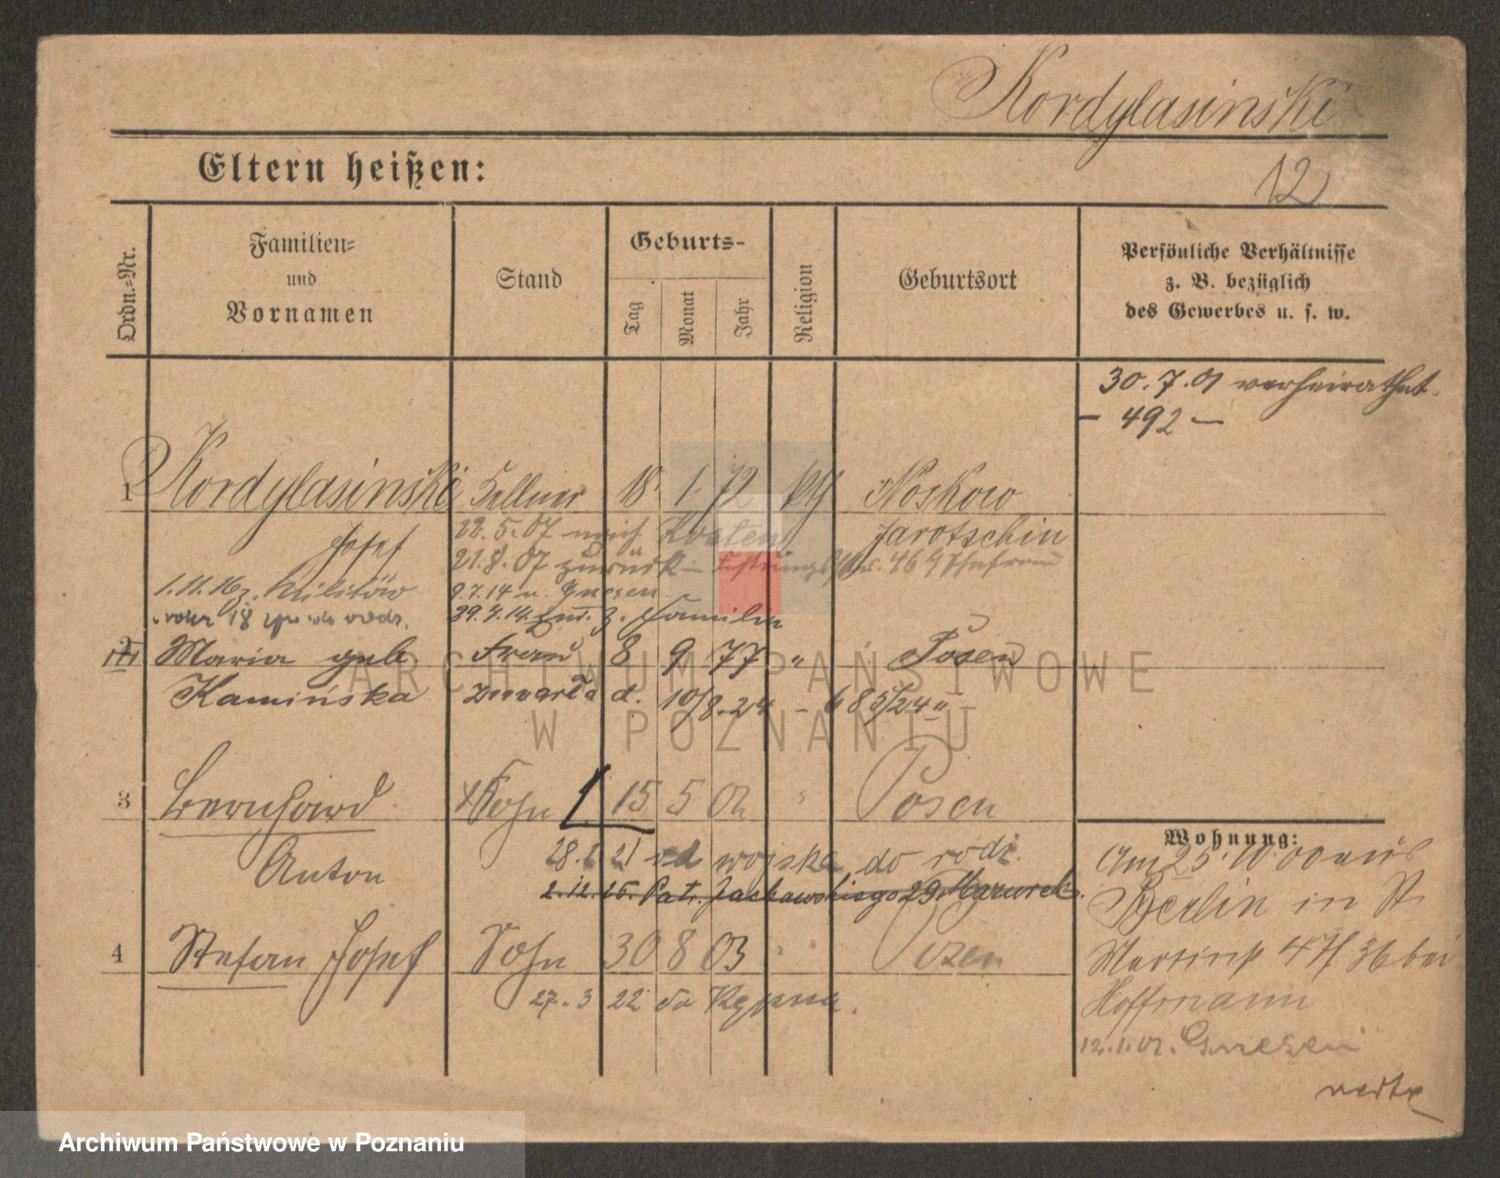 Kordylasinski
12
Eltern heißen:
Ordn.-Nr.
Familien-
und
Vornamen
Stand
Geburts-
Tag
Monat
Jahr
Religion
Geburtsort
Persönliche Verhältnisse
z. B. bezüglich
des Gewerbes u. s. w.
30.7.01 verheirathet.
- 492 -
1 Kordylasinski Kellner 18. 1. 72 Noskow
Josef 22.5.07 nach Kosten Jarotschin
21.8.07 zurück
1.11.16 z. Militär 9.7.14 n. Gnesen
29.7.14 z. Familie
2 Maria geb Frau 8 9 77 " Posen
Kamińska zmarła d. 10/8.24 - 685/24 II -
3 Bernhard Sohn 15 5 02 " Posen
Anton 28. 21 wojska do rodz.
2.12.25. Pat. Jackowskiego 29 Mazurek.
4 Stefan Josef Sohn 30 8 03 " Posen
27.3 22 do
Wohnung:
Am 25.10.00 aus
Berlin in St.
Martinstr 47/ 36 bei
Hoffmann
12.1.01. Gnesen
verte
ARCHIWUM PAŃSTWOWE
W POZNANIU
Archiwum Państwowe w Poznaniu